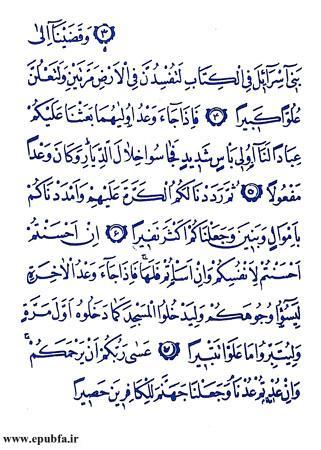 ﴿۳﴾ وَ قَضَيْنٰا اِلىٰ
بَنى اِسْرٰائيلَ فِى الْكِتٰابِ لَتُفْسِدُنَّ فِى الْاَرْضِ مَرَّتَيْنِ وَلَتَعْلُنَّ
عُلُوًّا كَبيراً ﴿۴﴾ فَاِذٰا جٰاءَ وَعْدُ اُوليٰهُمٰا بَعَثْنٰا عَلَيْكُمْ
عِبٰاداً لَنٰا اُولى بَاْسٍ شَديدٍ فَجٰاسُوا خِلٰالَ الدِّيٰارِ وَ كٰانَ وَعْداً
مَفْعُولاً ﴿۵﴾ ثُمَّ رَدَدْنٰا لَكُمُ الْكَرَّةَ عَلَيْهِمْ وَ اَمْدَدْنٰاكُمْ
بِاَمْوٰالٍ وَ بَنينَ وَ جَعَلْنٰاكُمْ اَكْثَرَ نَفيراً ﴿۶﴾ اِنْ اَحْسَنْتُمْ
اَحْسَنْتُمْ لِاَنْفُسِكُمْ وَ اِنْ اَسَاْتُمْ فَلَهٰا فَاِذٰا جٰاءَ وَعْدُ الْاٰخِرَةِ
لِيَسُؤٗا وُجُوهَكُمْ وَ لِيَدْخُلُوا الْمَسْجِدَ كَمٰا دَخَلُوهُ اَوَّلَ مَرَّةٍ
وَ لِيُتَبِّرُوا مٰا عَلَوْا تَتْبيراً ﴿۷﴾ عَسىٰ رَبُّكُمْ اَنْ يَرْحَمَكُمْ
وَ اِنْ عُدْتُمْ عُدْنٰا وَ جَعَلْنٰا جَهَنَّمَ لِلْكٰافِرينَ حَصيراً
www.epubfa.ir